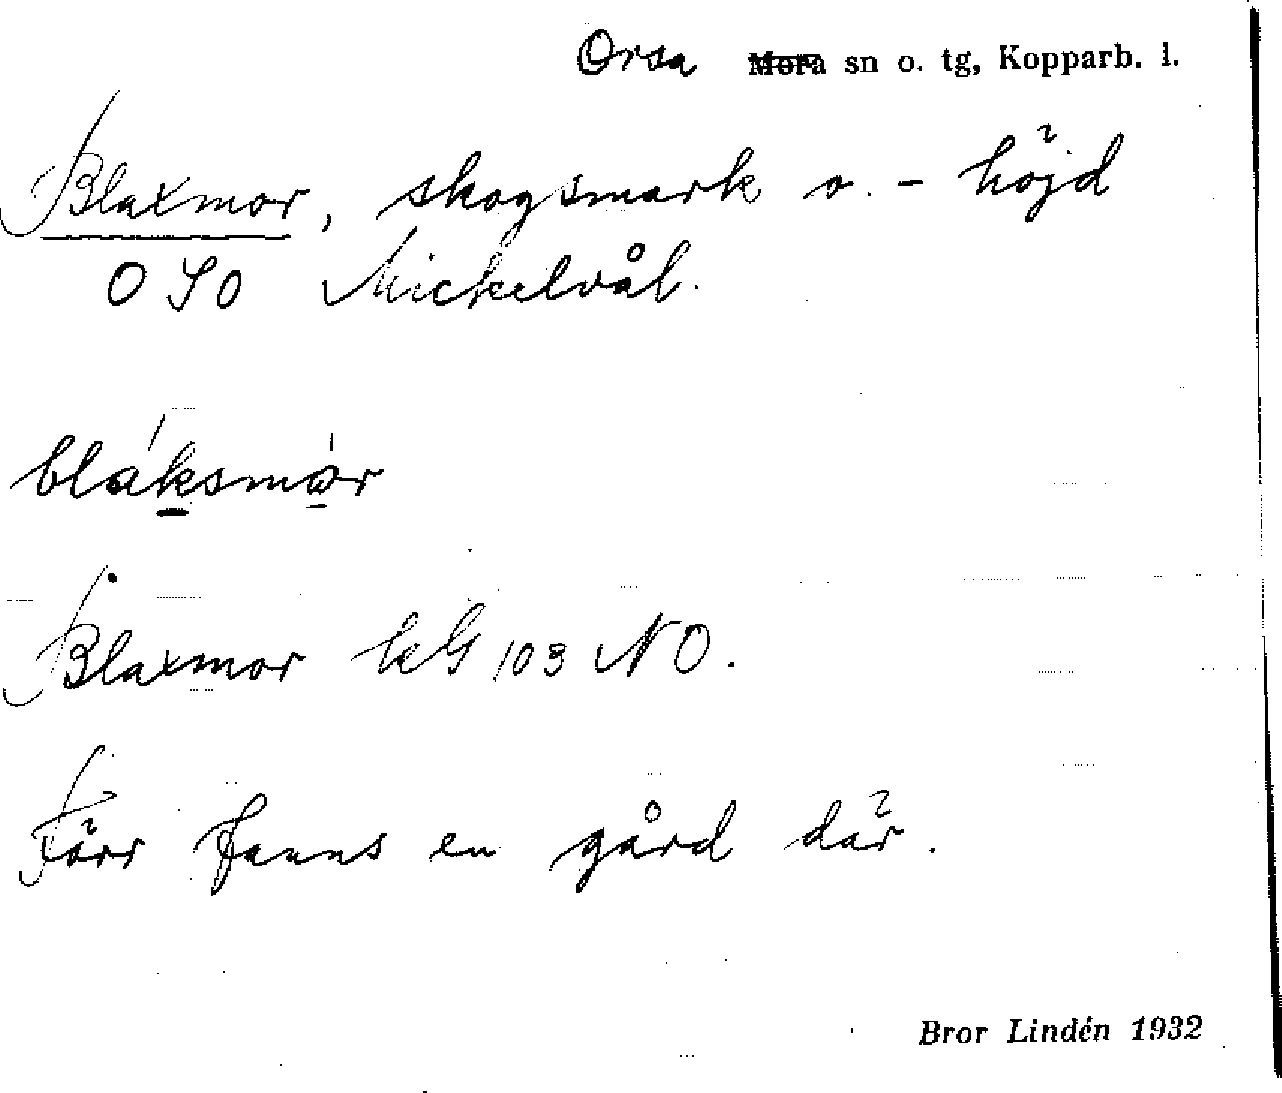 Orsa Mora sn o. tg, Kopparb. l.
Blaxmor, skogsmark o. - höjd
O S O Mickelvål.
bláksmòr
Blaxmor kG 103 NO.
Förr fanns en gård där.
Bror Lindén 1932